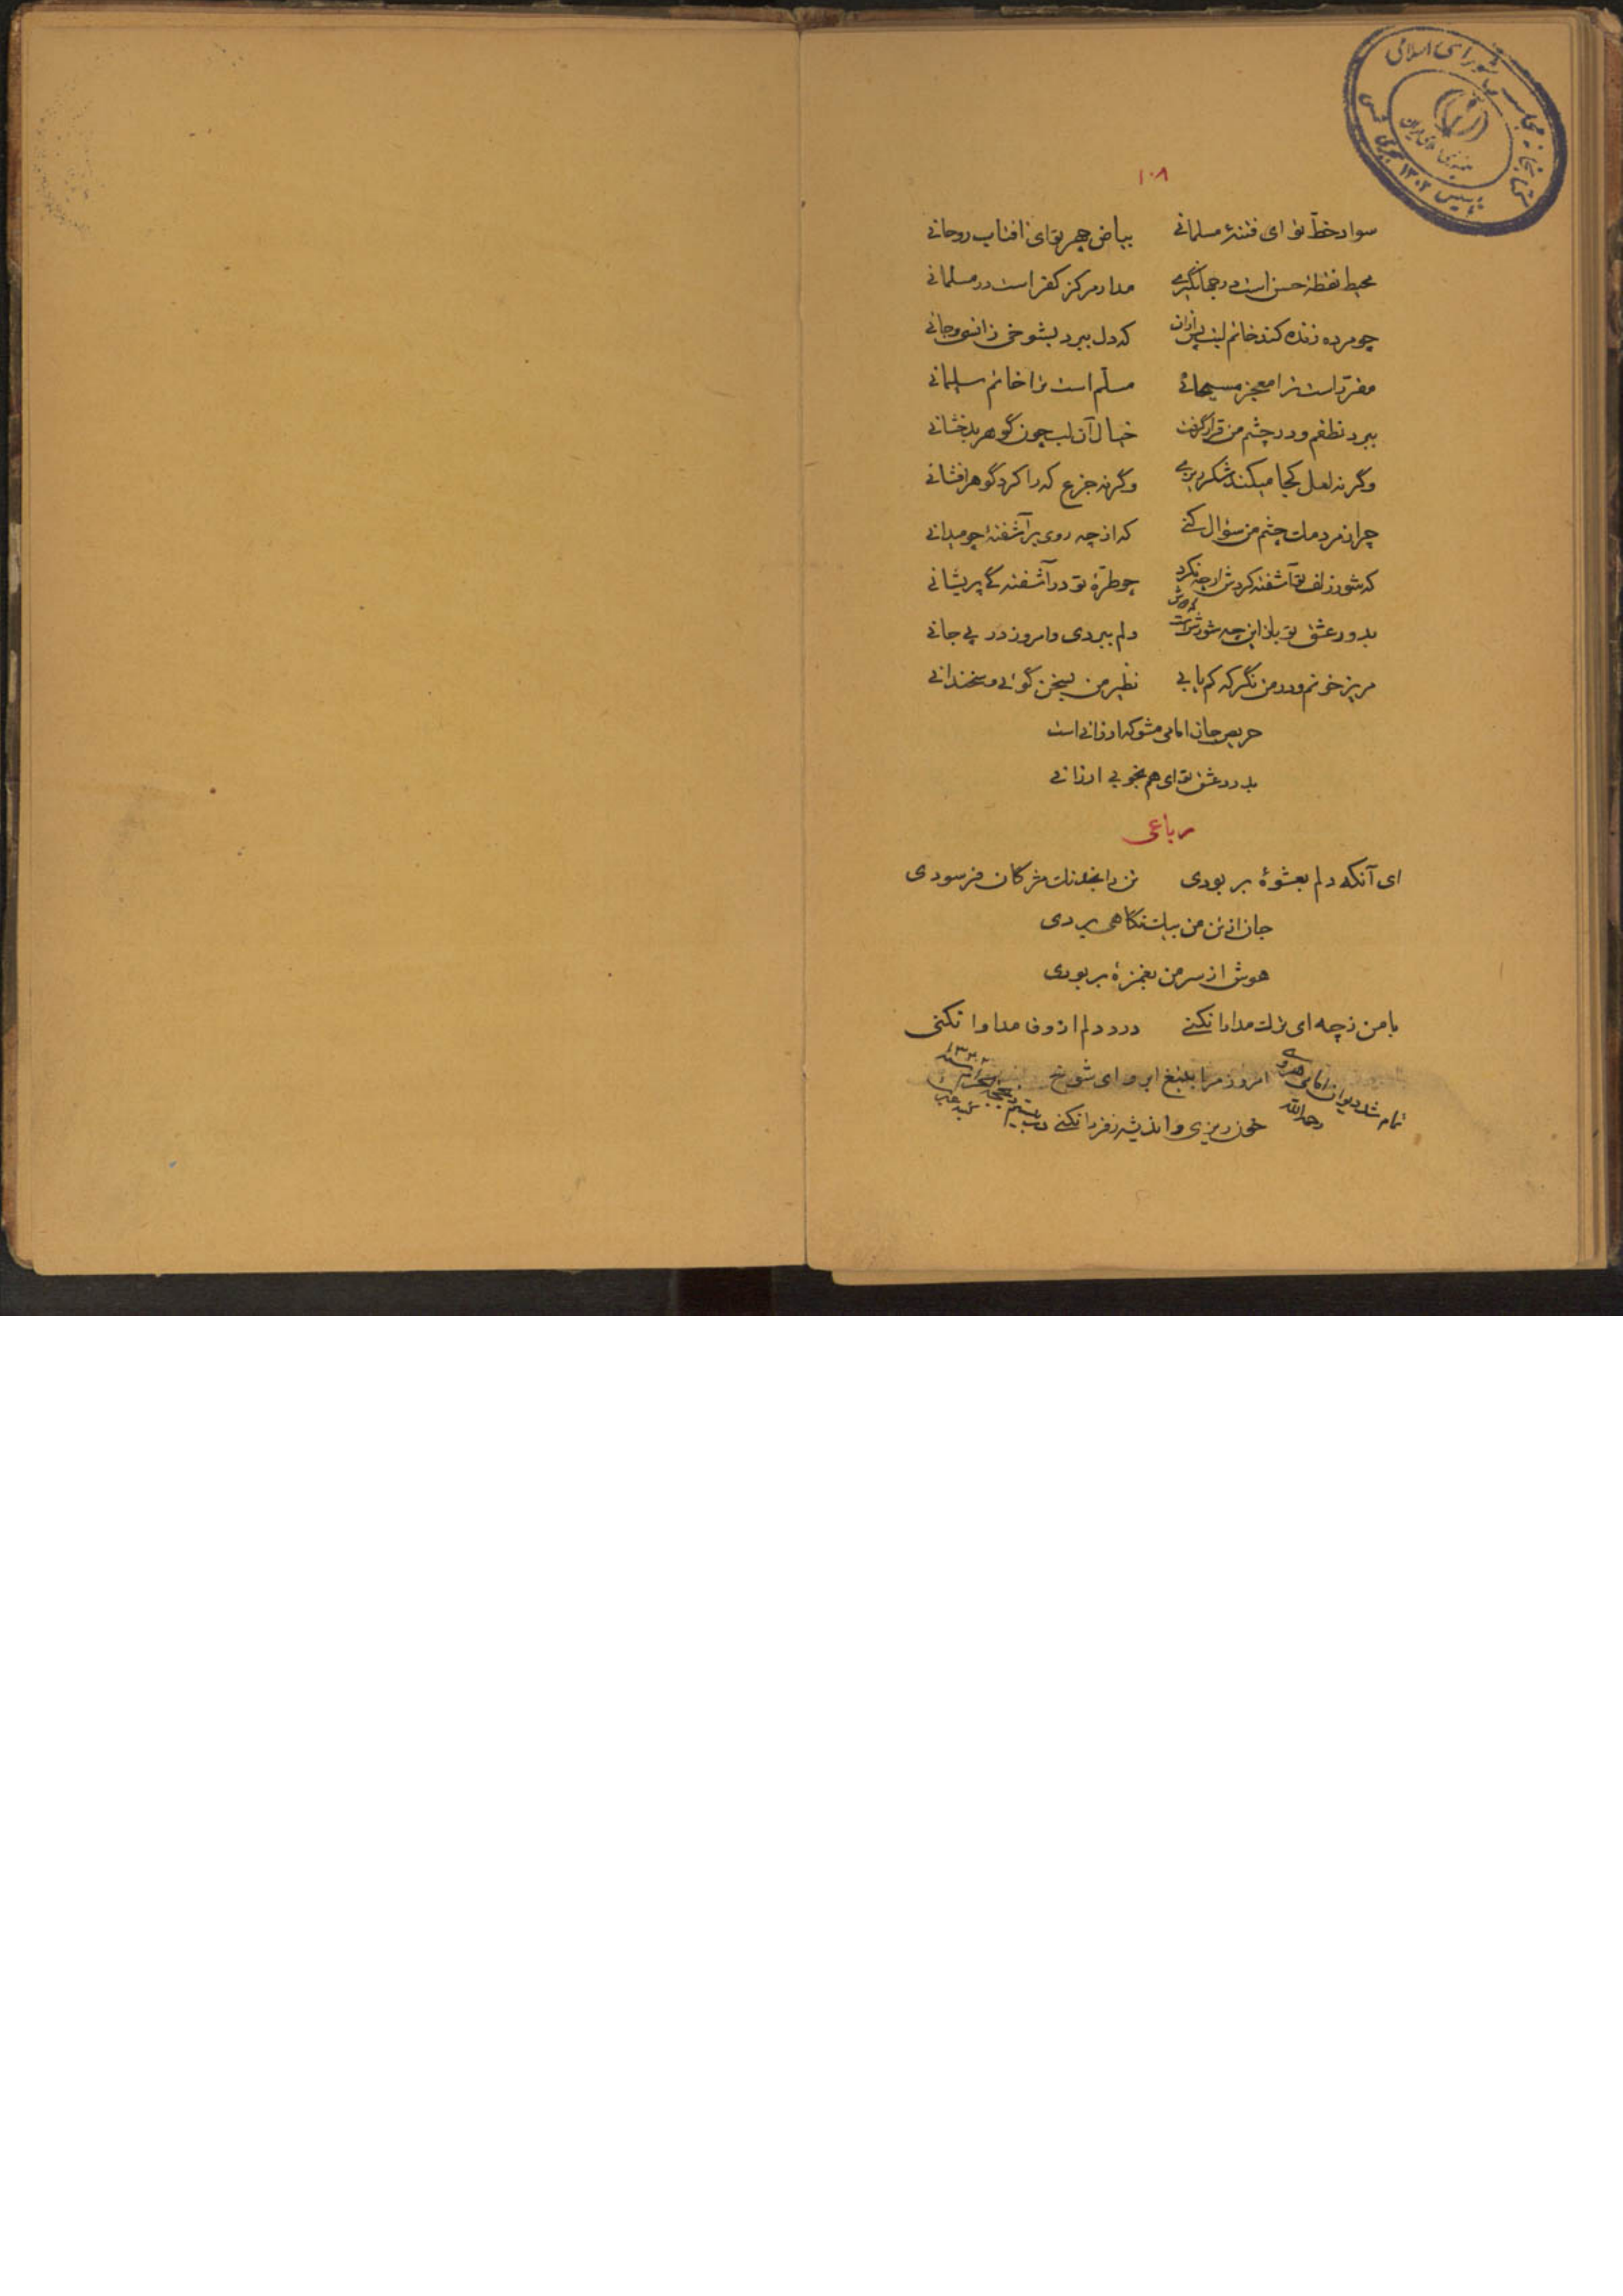 کتابخانه مجلس شورای اسلامی
تأسیس ۱۳۰۲ هجری شمسی
۱۰۸
سواد خطّ تو ای فتنهٔ مسلمانی بیاض چهر تو ای آفتاب روحانی
محیط نقطهٔ حسن است در جهانگیری مدار مرکز کفر است در مسلمانی
چو مرده زنده کند خاتم لبت پس از آن که دل ببرد بشوخی ز انسی و جانی
مقرّر است ترا معجز مسیحائی مسلّم است ترا خاتم سلیمانی
ببرد نطقم و در چشم من قرار گرفت خیال آن لب چون گوهر بدخشانی
وگرنه لعل کجا میکند شکرریزی وگرنه جزع که را کرد گوهر افشانی
چرا ز مردمک چشم من سؤال کنی که از چه روی برآشفتهٔ چو میدانی
که شور زلف تو آشفته کردش ار چه نکرد چو طرّهٔ تو در آشفتگی پریشانی
بدور عشق تو باز این چه شورش است دلم ببردی و امروز در پی جانی
مریز خونم و در من نگر که کم یابی نظیر من بسخن گوئی و سخندانی
حریص جان امامی مشو که ارزانی است
بدور عشق تو ای هم بخوبی ارزانی
رباعی
ای آنکه دلم بعشوهٔ بربودی تن را بخدنگ مژگان فرسودی
جان از تن من بیک نگاهی بردی
هوش از سر من بغمزهٔ بربودی
با من ز چه ای ترک مدارا نکنی درد دلم از وفا مداوا نکنی
امروز مرا بتیغ ابرو ای شوخ
خون ریزی و اندیشه ز فردا نکنی
تمام شد دیوان امامی هروی
رحمه الله